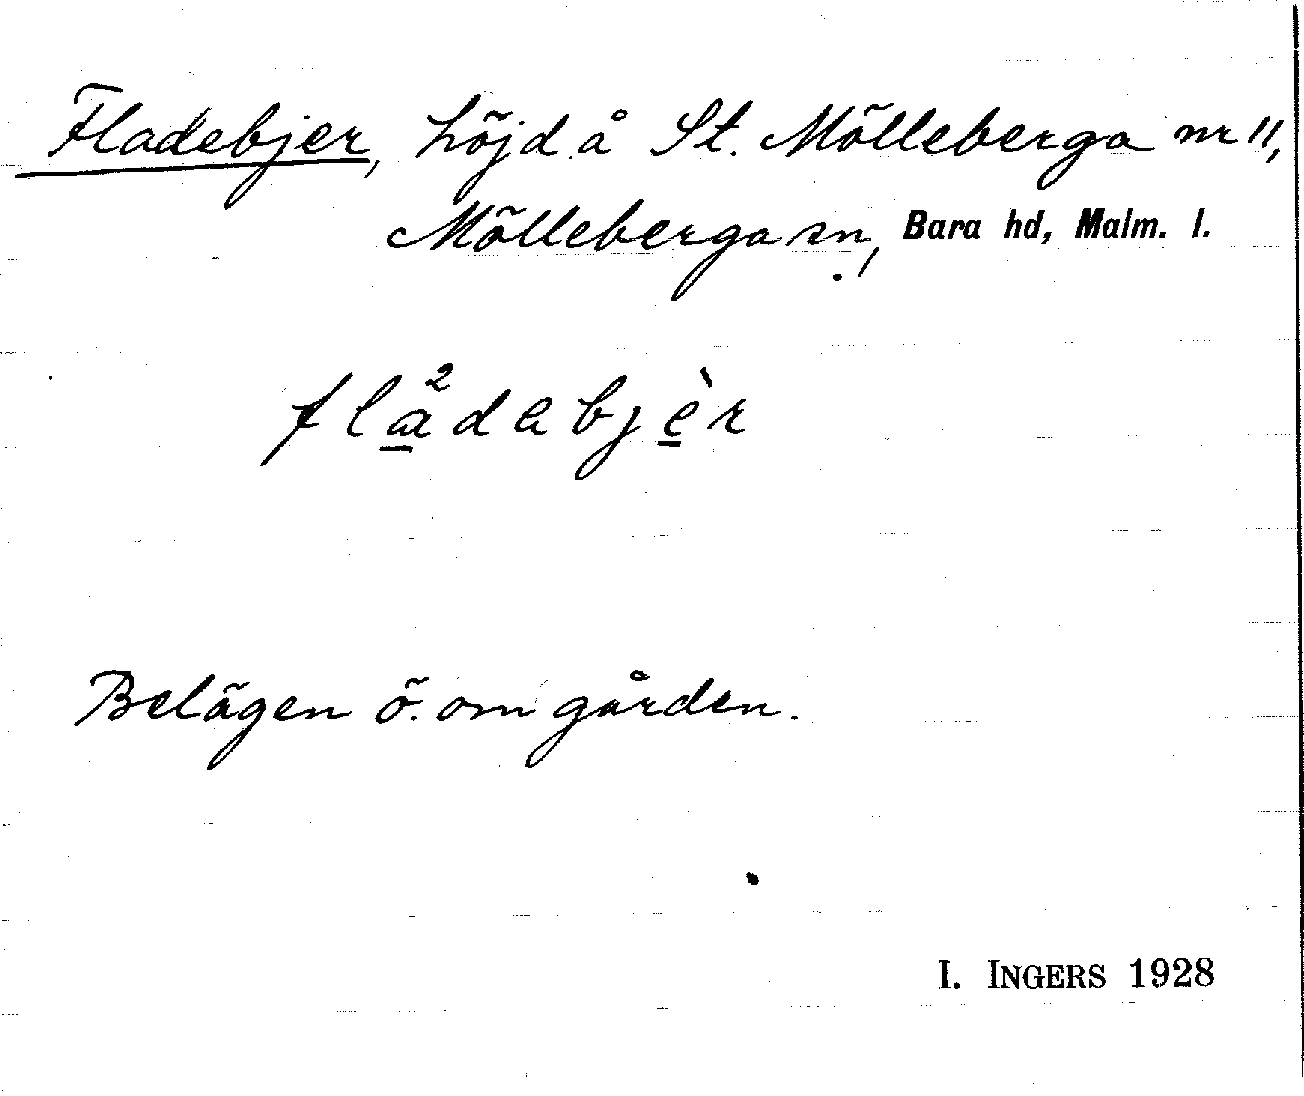 Fladebjer, höjd å St. Mölleberga nr 11,
Mölleberga sn, Bara hd, Malm. l.
fla²dabjèr
Belägen ö. om gården.
I. INGERS 1928